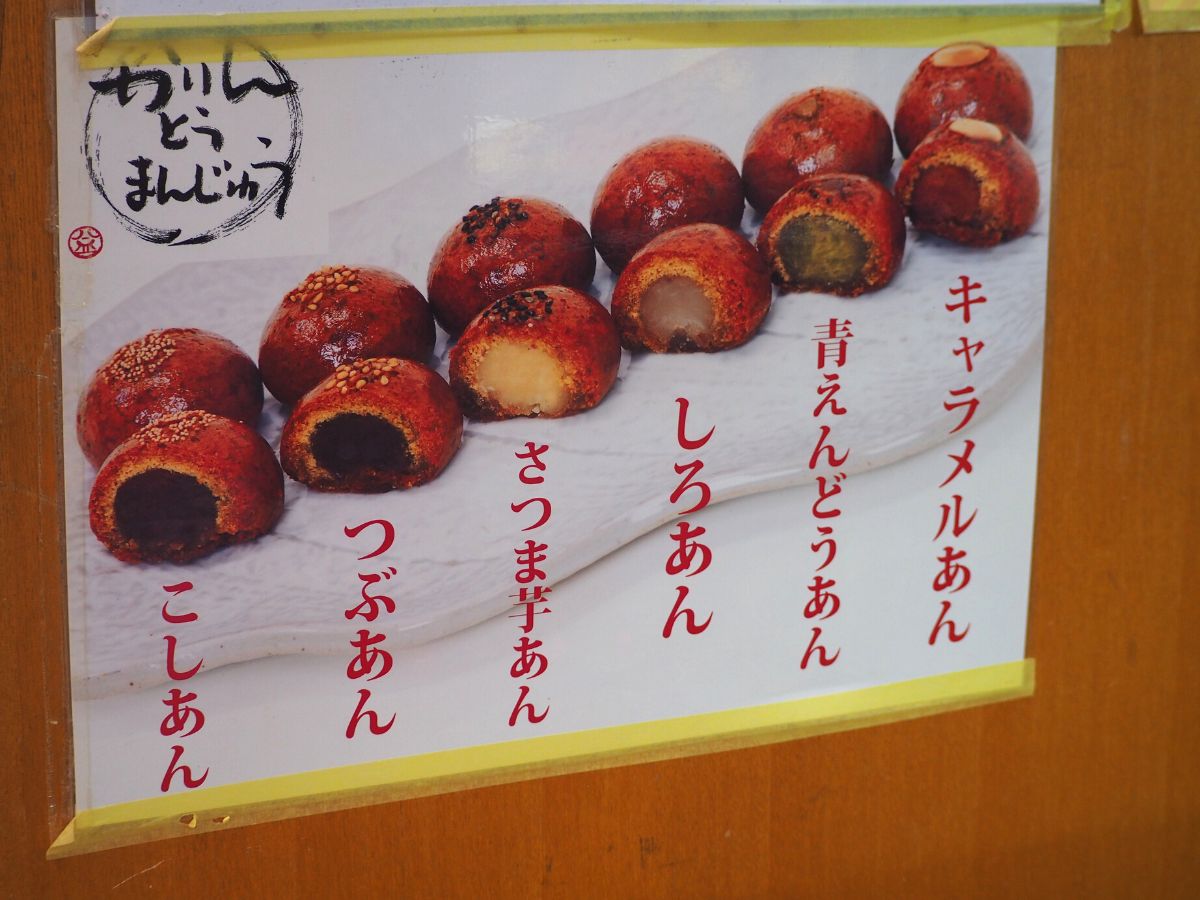 かりん
とう
まんじゅう
キャラメルあん
青えんどうあん
しろあん
さつま芋あん
つぶあん
こしあん